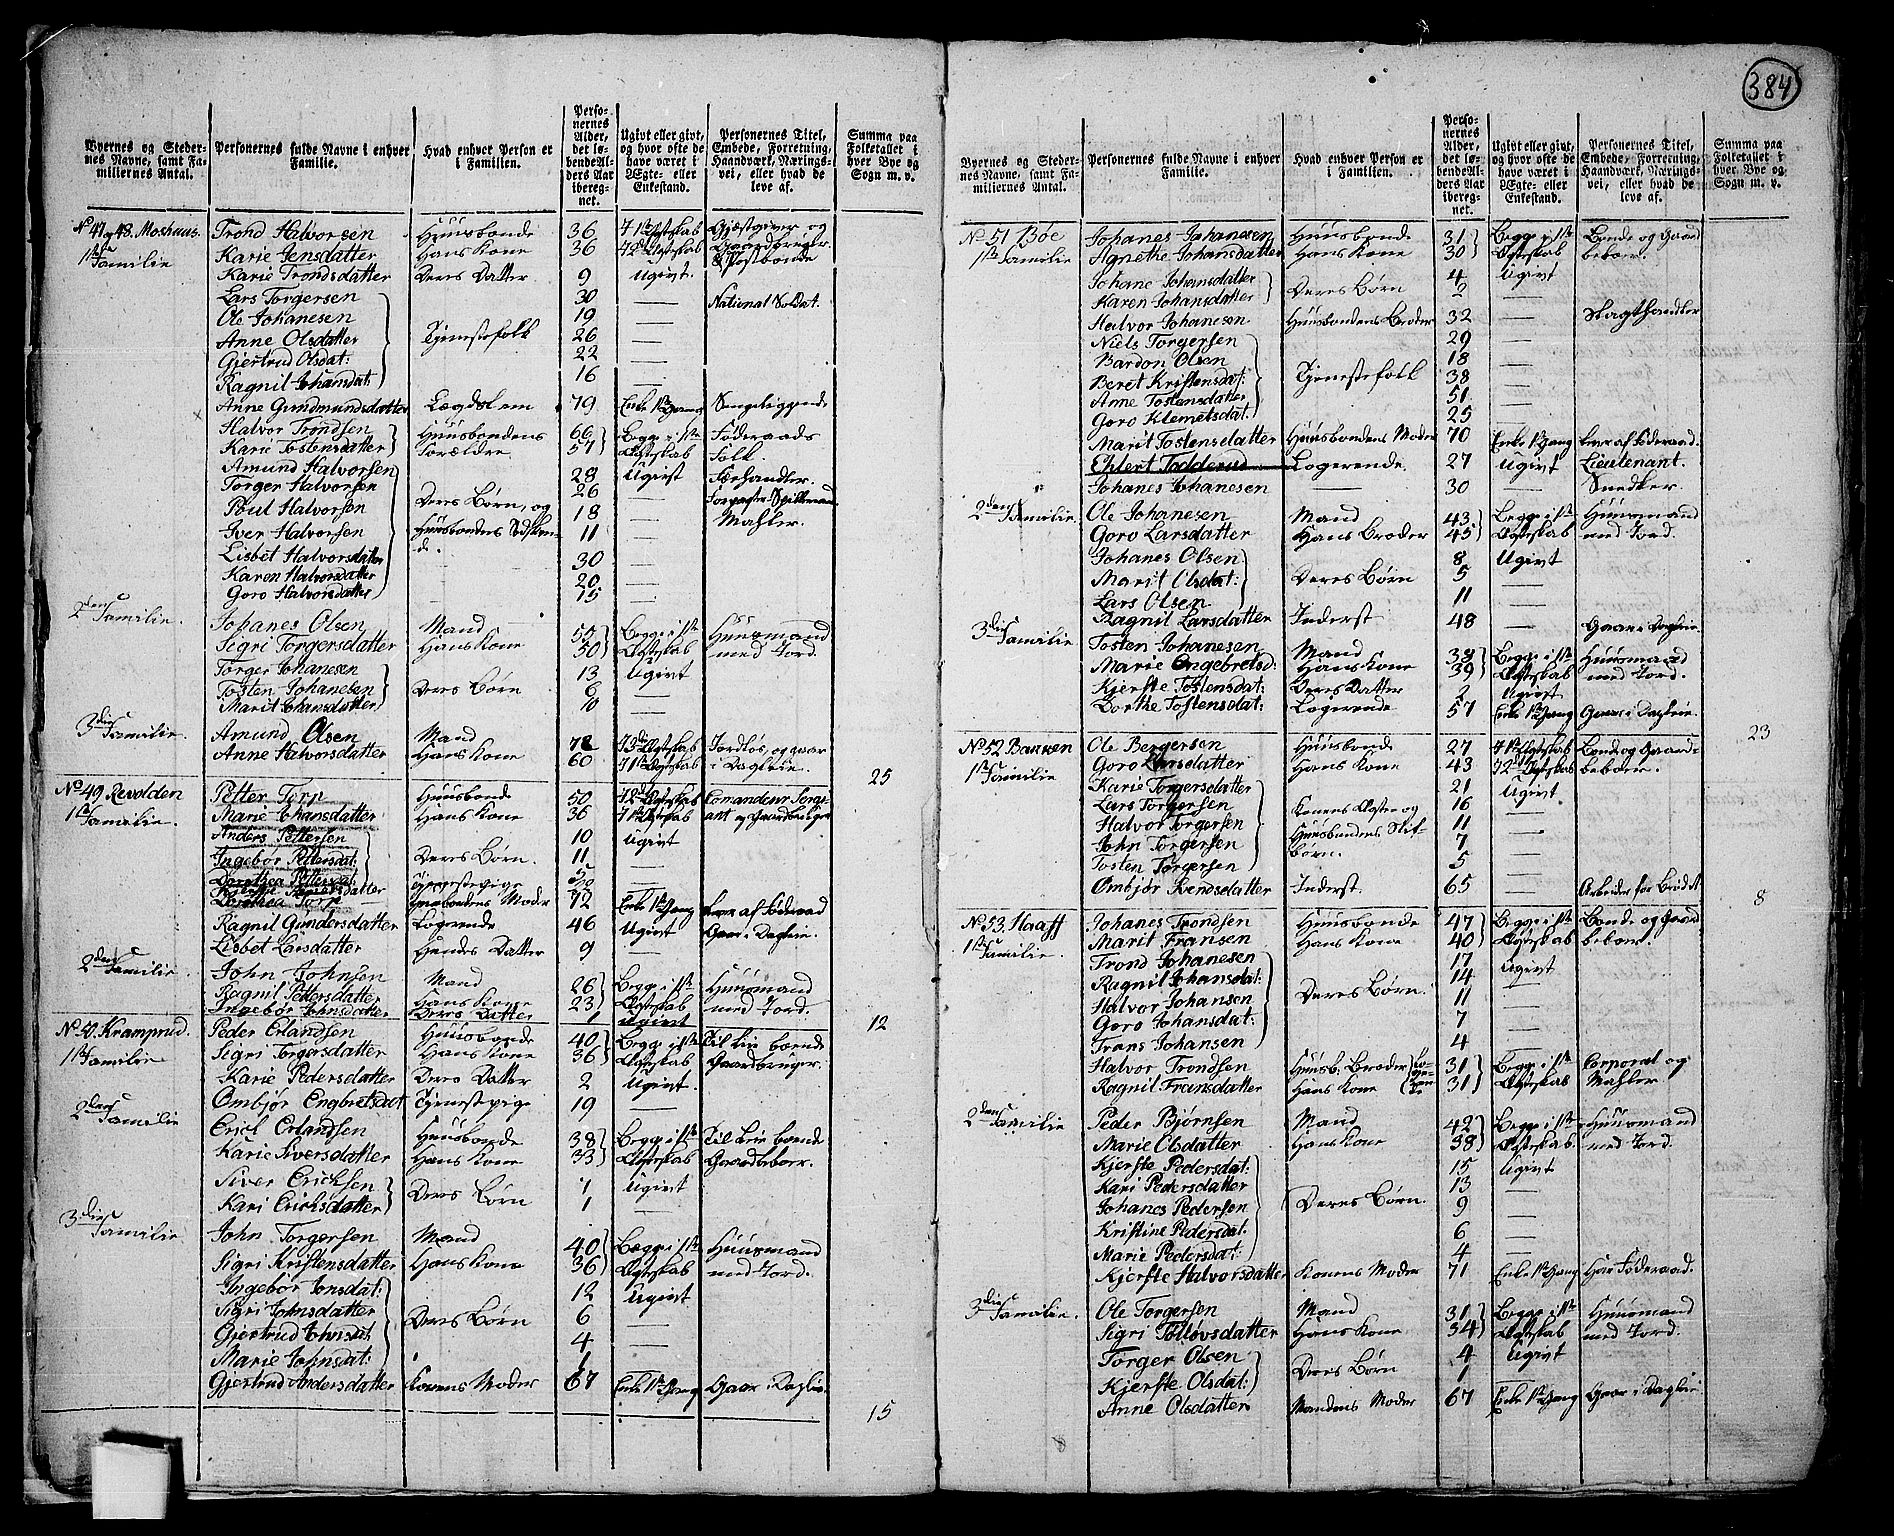 384
Byernes og Stedernes Navne, samt Familiernes Antal.
Personernes fulde Navne i enhver Familie.
Hvad enhver Person er i Familien.
Personernes Alder, det løbende Alders Aar iberegnet.
Ugivt eller givt, og hvor ofte de have været i Ægte- eller Enkestand.
Personernes Titel, Embede, Forretning, Haandværk, Næringsvei, eller hvad de leve af.
Summa paa Folketallet i hver Bye og Sogn m. v.
No 47 og 48. Moshuus. Trond Halvorsen Huusbonde 36 Gjestgiver og
1ste Familie Karie Jensdatter Hans Kone 36 Gaardbruger
& Postbonde
Karie Trondsdatter Deres Datter 9 Ugivt.
Lars Torgersen 30 — National Soldat.
Ole Johanesen 19 —
Anne Olsdatter Tjenestefolk 26 —
Gjertrud Olsdat: 22 —
Ragnil Johansdat: 16 —
Anne Gundmundsdatter Lægdslem 79 Enke 1ste Gang Sengeliggende
Halvor Trondsen Huusbondens 66 Begge i 1ste Føderaads
Karie Tostensdatter Forældre 57 Ægteskab Folk.
Amund Halvorsen 28 Ugivt Færhandler.
Torger Halvorsen 26 —
Poul Halvorsen Deres Børn, og 18 — Mahler.
Iver Halvorsen Huusbondens Sødskende. 11 —
Lisbet Halvorsdatter 30 —
Karen Halvorsdatter 20 —
Goro Halvorsdatter 15 —
2den Familie. Johanes Olsen Mand 55 Begge i 1ste Huusmand
Sigri Torgersdatter Hans Kone 50 Ægteskab med Jord.
Torger Johanesen 13 Ugivt
Tosten Johanesen Deres Børn 6 —
Marit Johansdatter —
3die Familie. Amund Olsen Mand 72 Jordløs, gaar
Anne Halvorsdatter Hans Kone 60 i Dagleie. 25
No 49 Revolden Petter Torp Huusbonde 50 Comandeur Sergi-
1ste Familie. Marie Johansdatter Hans Kone 36 ant og Gaardbruger
Anders Pettersen 10 Ugivt
Ingebør Pedersdat: Deres Børn. 11 —
Dorothea Pettersdat: 5 —
Tjenestepige
Dorothea Torp Huusbondens Moder 72 Enke 1ste Gang Lever af Føderaad
Ragnil Gundersdatter Logerende 46 Ugivt Gaar i Dagleie.
Lisbet Larsdatter Hendes Datter 9 —
2den Familie. John Johnsen Mand 26 Begge i 1ste Huusmand
Ragnil Pettersdatter Hans Kone 23 Ægteskab med Jord.
Ingebør Johnsdatter Deres Datter 1 Ugivt 12
No 50. Kramprud. Peder Erlandsen Huusbonde 40 Begge i 1ste
1ste Familie Sigri Torgersdatter Hans Kone 36 Ægteskab Gaardbruger.
Karie Pedersdatter Deres Datter 2 Ugivt.
Ombjør Engbretsdat Tjenestpige 19 —
2den Familie Erich Erlandsen Huusbonde 38 Begge i 1ste
Karie Siversdatter Hans Kone 33 Ægteskab Gaardbeboer.
Siver Ericksen 7 Ugivt
Kari Ericksdatter Deres Børn 1 —
3die Familie John Torgersen Mand 40 Begge i 1ste Huusmand
Sigri Kristensdatter Hans Kone 36 Ægteskab med Jord.
Ingebør Jonsdat: 12 Ugivt
Sigri Johnsdatter Deres Børn 6 —
Gjertrud Johnsdat 4 —
Marie Johnsdat: 1 —
Gjertrud Andersdatter Konens Moder 67 Enke 1ste Gang Gaar i Dagleie. 15
Byernes og Stedernes Navne, samt Familiernes Antal.
Personernes fulde Navne i enhver Familie.
Hvad enhver Person er i Familien.
Personernes Alder, det løbende Alders Aar iberegnet.
Ugivt eller givt, og hvor ofte de have været i Ægte- eller Enkestand.
Personernes Titel, Embede, Forretning, Haandværk, Næringsvei, eller hvad de leve af.
Summa paa Folketallet i hver Bye og Sogn m. v.
No 51 Bøe Johanes Johanesen Huusbonde 31 Begge i 1ste Bonde og Gaard
1ste Familie Agnethe Johansdatter Hans Kone 30 Ægteskab beboer.
Johane Johansdatter Deres Børn 4 Ugivt
Karen Johansdatter 2 —
Halvor Johanesen Huusbondens Broder 32 — Slagthandler
Niels Torgersen 29 —
Bardon Olsen 18 —
Beret Kristensdat: Tjenestefolk 38 —
Anne Tostensdatter 51 —
Goro Klemetsdat. 25 —
Marit Tostensdatter Huusbondens Moder 70 Enke 1ste Gang Lever af Føderaad.
Ehlert Todderud Logerende. 27 Ugivt Lieutenant.
Johanes Johanesen — 30 — Snedker.
2den Familie. Ole Johanesen Mand 43 Begge i 1ste Huusmand
Goro Larsdatter Hans Broder 45 Ægteskab med Jord.
Johanes Olsen 8 Ugivt
Marit Olsdat: Deres Børn 5 —
Lars Olsen 11 —
Ragnil Larsdatter Inderst 48 — Gaar i Dagleie.
3die Familie Tosten Johanesen Mand 38 Begge i 1ste Huusmand
Marie Engebretsd. Hans Kone 39 Ægteskab med Jord.
Kjerste Tostensdat: Deres Datter 2 Ugivt
Dorthe Tostensdat: Logerende 57 Enke 1ste Gang Gaar i Dagleie. 23
No 52 Ole Bergersen Huusbonde 27 Bonde og Gaard-
1ste Familie Goro Larsdatter Hans Kone 43 beboer.
Karie Torgersdatter 21 Ugivt
Lars Torgersen Konens Ægte og 16 —
Halvor Torgersen Huusbondens Stif- 11 —
John Torgersen børn. 7 —
Tosten Torgersen 5 —
Ombjør Svendsdatter Inderst. 65 — Arbeider for Brødet 8
No 53. Haaff Johanes Trondsen Huusbonde 47 Begge i 1ste Bonde og Gaard
1ste Familie. Marit Fransen Hans Kone 40 Ægteskab beboer.
Trond Johanesen 17 Ugivt
Ragnil Johansdat: 14 —
Halvor Johansen Deres Børn. 11 —
Goro Johansdat: 7 —
Frans Johansen 4 —
Halvor Trondsen Huusb. Broder 31 Begge i 1ste Corporal og
Ragnil Fransdatter Hans Kone 31 Ægteskab Mahler.
2den Familie Peder Bjørnsen Mand 42 Begge i 1ste Huusmand
Marie Olsdatter Hans Kone 38 Ægteskab med Jord.
Kjerste Pedersdat: 15 Ugivt
Kari Pedersdatter 13 —
Johanes Pedersen Deres Børn. 9 —
Kristine Pedersdat. 6 —
Marie Pedersdat: 4 —
Kjerste Halvorsdatter Konens Moder 71 Enke 1ste Gang Har Føderaad.
3die Familie. Ole Torgersen Mand 31 Begge i 1ste Huusmand
Sigri Tolløvsdatter Hans Kone 34 Ægteskab med Jord.
Torger Olsen Deres Børn 4 Ugivt
Kjerste Olsdat: 1 —
Anne Olsdatter Mandens Moder 67 Enke 1ste Gang Gaar i Dagleie